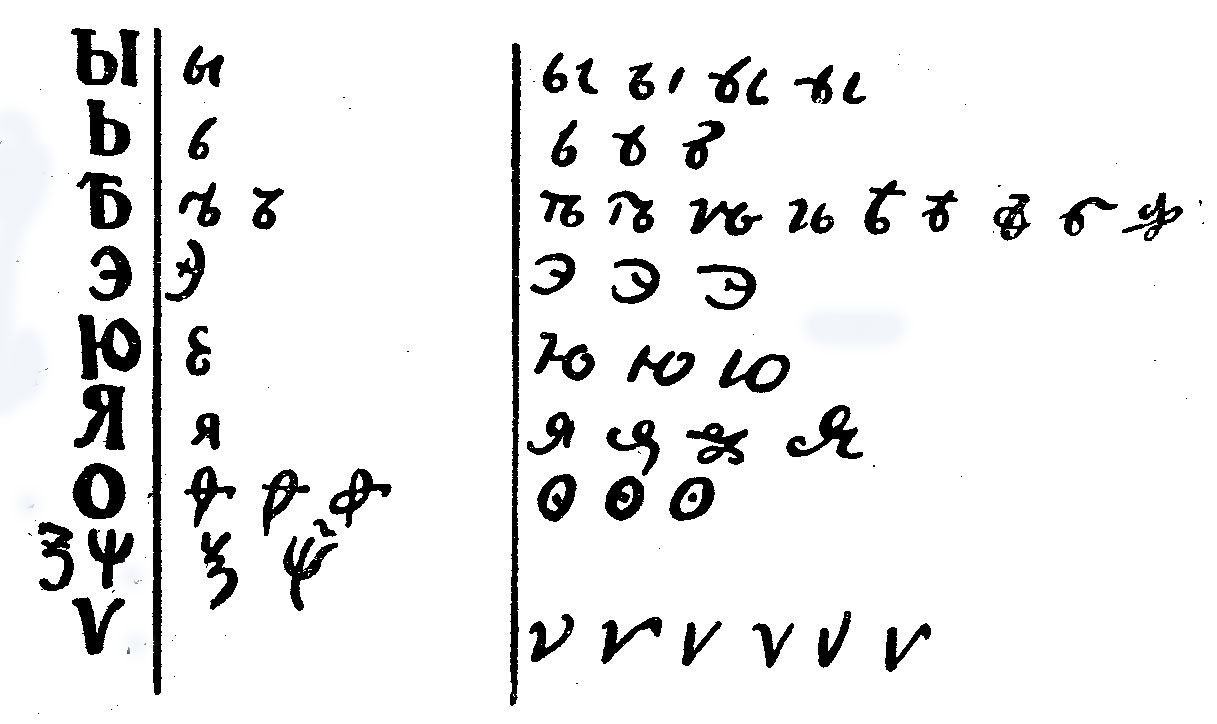 Ы ы ы ы ы ы
Ь ь ь ь ь
Ѣ ѣ ѣ ѣ ѣ ѣ ѣ ѣ ѣ
Э э э э э
Ю ю ю ю
Я я я я я я
О ѳ ѳ ѳ
Ѯ Ѱ ѯ ѱ
Ѵ ѵ ѵ ѵ ѵ ѵ ѵ